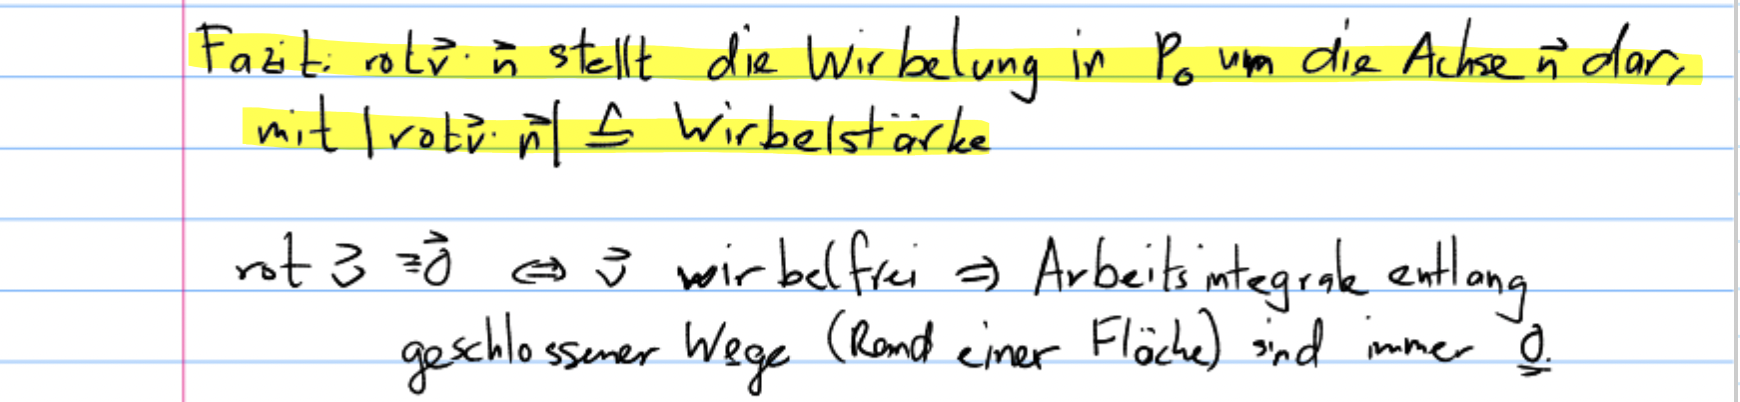 Fazit: rot v⃗ · n⃗ stellt die Wirbelung in P₀ um die Achse n⃗ dar,
mit |rot v⃗ · n⃗| ≙ Wirbelstärke
rot v⃗ = 0⃗ ⇔ v⃗ wirbelfrei ⇒ Arbeitsintegrale entlang
geschlossener Wege (Rand einer Fläche) sind immer 0.